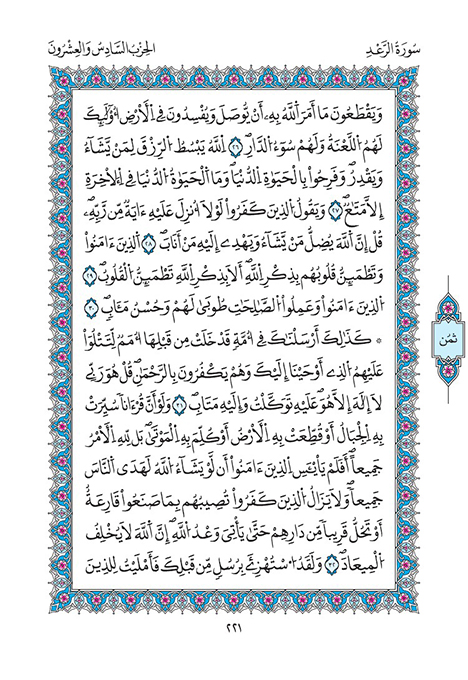 سُورَةُ الرَّعْدِ
الحِزْبُ السَّادِسُ وَالعِشْرُونَ
وَيَقْطَعُونَ مَا أَمَرَ اَللَّهُ بِهِۦٓ أَنْ يُّوصَلَ وَيُفْسِدُونَ فِے اِلْأَرْضِ أُوْلَٰٓئِكَ
لَهُمُ اُللَّعْنَةُ وَلَهُمْ سُوٓءُ اُلدّ۪ارِۖ ٢٦ اَللَّهُ يَبْسُطُ اُلرِّزْقَ لِمَنْ يَّشَآءُ
وَيَقْدِرُۖ وَفَرِحُواْ بِالْحَيَوٰةِ اِلدُّنْيَاۖ وَمَا اَلْحَيَوٰةُ اُلدُّنْيَا فِے اِلْأٓخِرَةِ
إِلَّا مَتَٰعٞۖ ٢٧ وَيَقُولُ اُلذِينَ كَفَرُواْ لَوْلَآ أُنزِلَ عَلَيْهِ ءَايَةٞ مِّن رَّبِّهِۦۖ
قُلِ اِنَّ اَللَّهَ يُضِلُّ مَنْ يَّشَآءُ وَيَهْدِےٓ إِلَيْهِ مَنْ أَنَابَۖ ٢٨ اَلذِينَ ءَامَنُواْ
وَتَطْمَئِنُّ قُلُوبُهُم بِذِكْرِ اِللَّهِۖ أَلَا بِذِكْرِ اِللَّهِ تَطْمَئِنُّ اُلْقُلُوبُۖ ٢٩
اُلذِينَ ءَامَنُواْ وَعَمِلُواْ اُلصَّٰلِحَٰتِ طُوب۪يٰ لَهُمْ وَحُسْنُ مَـَٔابٖۖ ٣٠
۞ كَذَٰلِكَ أَرْسَلْنَٰكَ فِےٓ أُمَّةٖ قَدْ خَلَتْ مِن قَبْلِهَآ أُمَمٞ لِّتَتْلُوَاْ
عَلَيْهِمُ اُلذِےٓ أَوْحَيْنَآ إِلَيْكَ وَهُمْ يَكْفُرُونَ بِالرَّحْمَٰنِۖ قُلْ هُوَ رَبِّے
لَآ إِلَٰهَ إِلَّا هُوَۖ عَلَيْهِ تَوَكَّلْتُ وَإِلَيْهِ مَتَابِۖ ٣١ وَلَوْ أَنَّ قُرْءَاناٗ سُيِّرَتْ
بِهِ اِلْجِبَالُ أَوْ قُطِّعَتْ بِهِ اِلْأَرْضُ أَوْ كُلِّمَ بِهِ اِلْمَوْت۪يٰۖ بَل لِّلهِ اِلْأَمْرُ
جَمِيعاًۖ اَفَلَمْ يَاْيْـَٔسِ اِلذِينَ ءَامَنُوٓاْ أَن لَّوْ يَشَآءُ اُللَّهُ لَهَدَي اَلنَّاسَ
جَمِيعاٗۖ وَلَا يَزَالُ اُلذِينَ كَفَرُواْ تُصِيبُهُم بِمَا صَنَعُواْ قَارِعَةٌ
اَوْ تَحُلُّ قَرِيباٗ مِّن دَارِهِمْ حَتَّىٰ يَاتِيَ وَعْدُ اُللَّهِۖ إِنَّ اَللَّهَ لَا يُخْلِفُ
اُلْمِيعَادَۖ ٣٢ وَلَقَدُ اُسْتُهْزِۓَ بِرُسُلٖ مِّن قَبْلِكَ فَأَمْلَيْتُ لِلذِينَ
ثُمُن
٢٢١